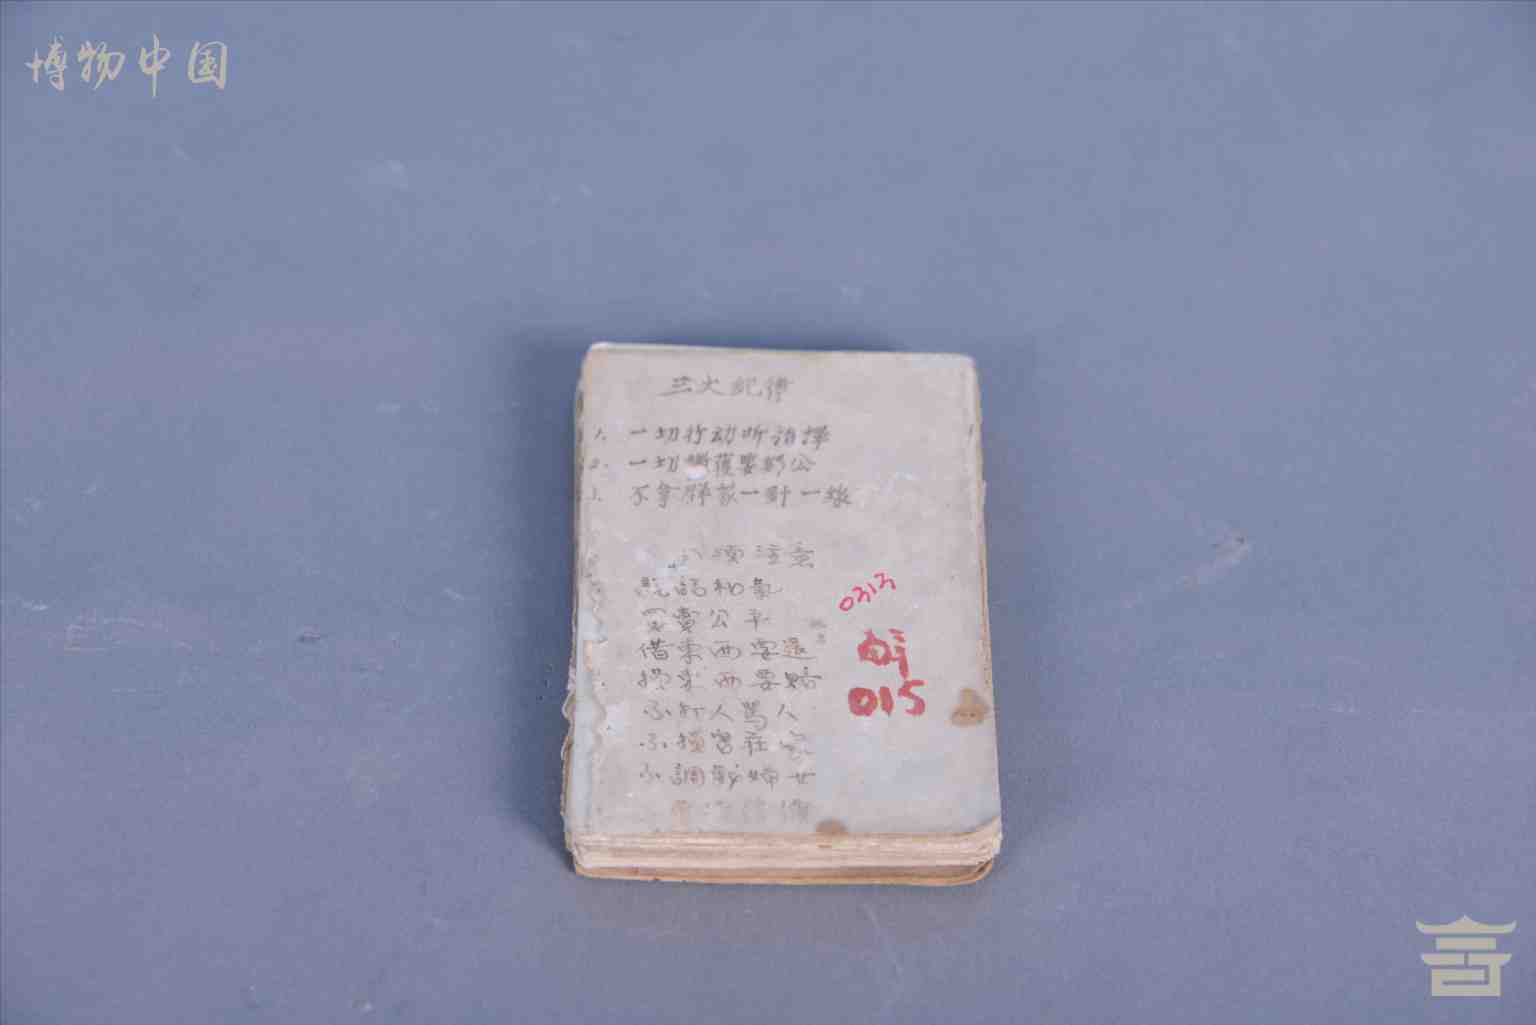 博物中国
三大纪律
1. 一切行动听指揮
2. 一切繳獲要归公
3. 不拿群众一針一線
八項注意
說話和氣
買賣公平
借東西要還
損東西要賠
不打人罵人
不損害莊
不調戲婦女
0313
015